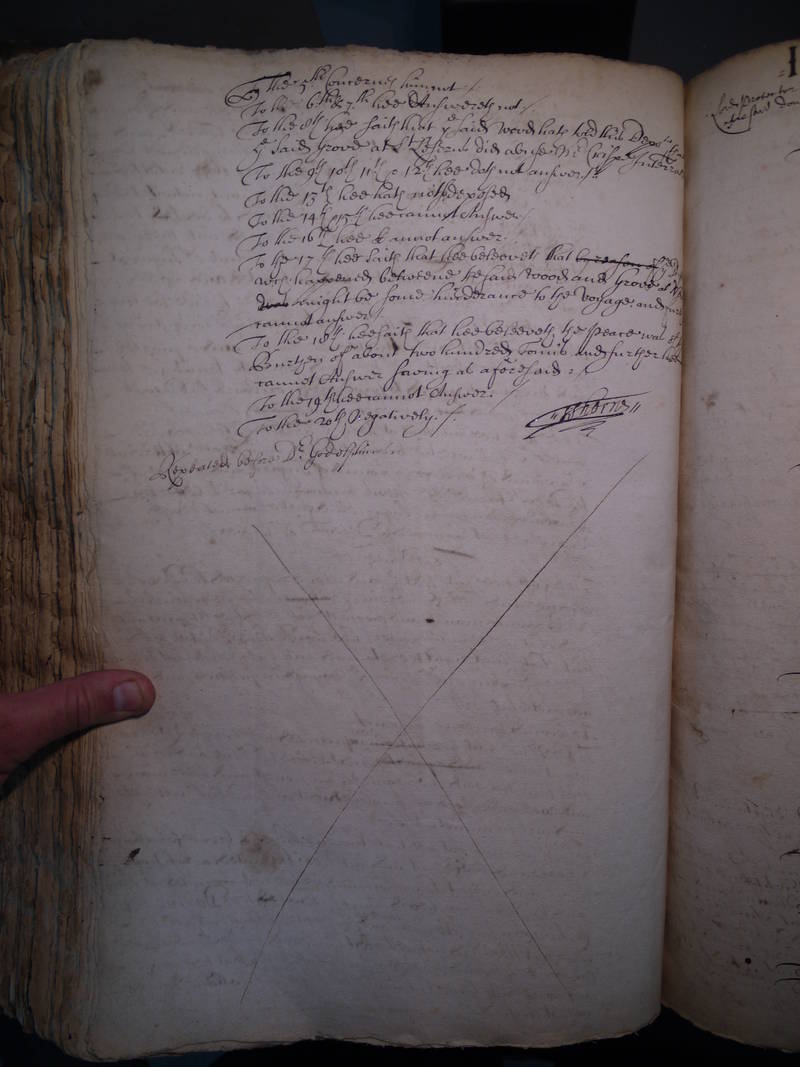 The 5th Concernes him not /
To the 6th & 7th hee Answereth not /
To the 8th hee saith that ye said Wood hath told this Depot
ye said Grove at did abuse Mr Interr
To the 9th 10th 11th & 12th hee doth not answer /
To the 13th hee hath deposed
To the 14th & 15th hee cannot Answer /
To the 16th hee cannot answer.
To the 17th hee saith that hee beleeveth that by reason of
wch happened betweene the said Wood and Grove at
was might be some hinderance to the Voyage, and
cannot answer /
To the 18th hee saith that hee beleeveth the Peace was of
Burthen of about two hundred Tonns and further hee
cannot Answer saving as aforesaid /
To the 19th hee cannot Answer. /
To the 20th Negatively. /
Repeated before Dr Godolphin